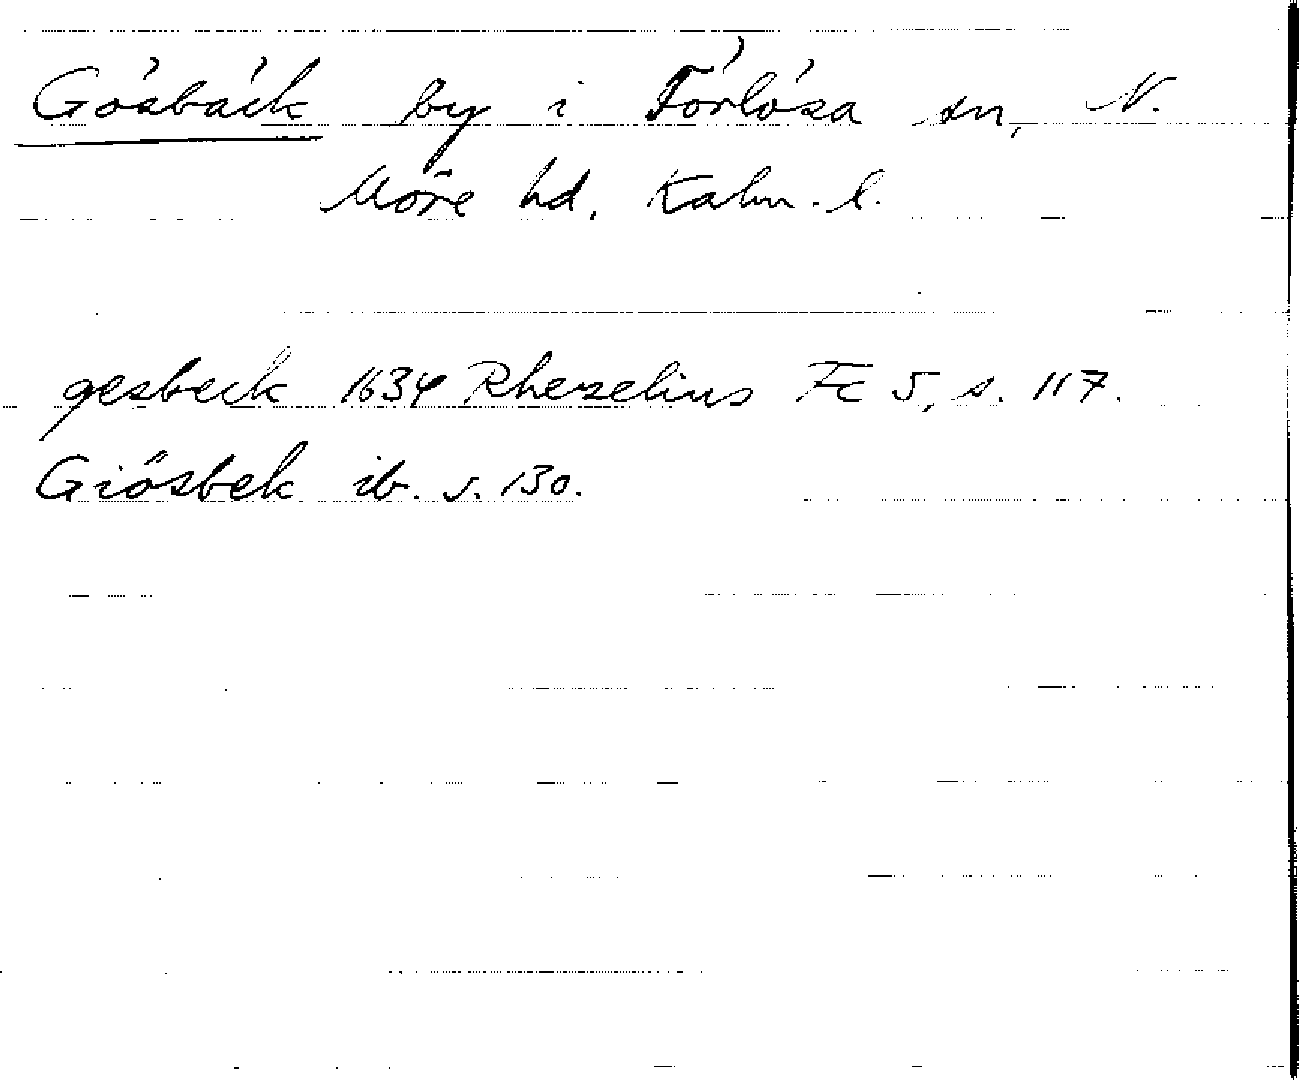 Gösbäck by i Förlösa sn, N.
Möre hd. Kalm. l.
gesbeck 1634 Rhezelius Fc 5, s. 117.
Giösbek ib. s. 130.